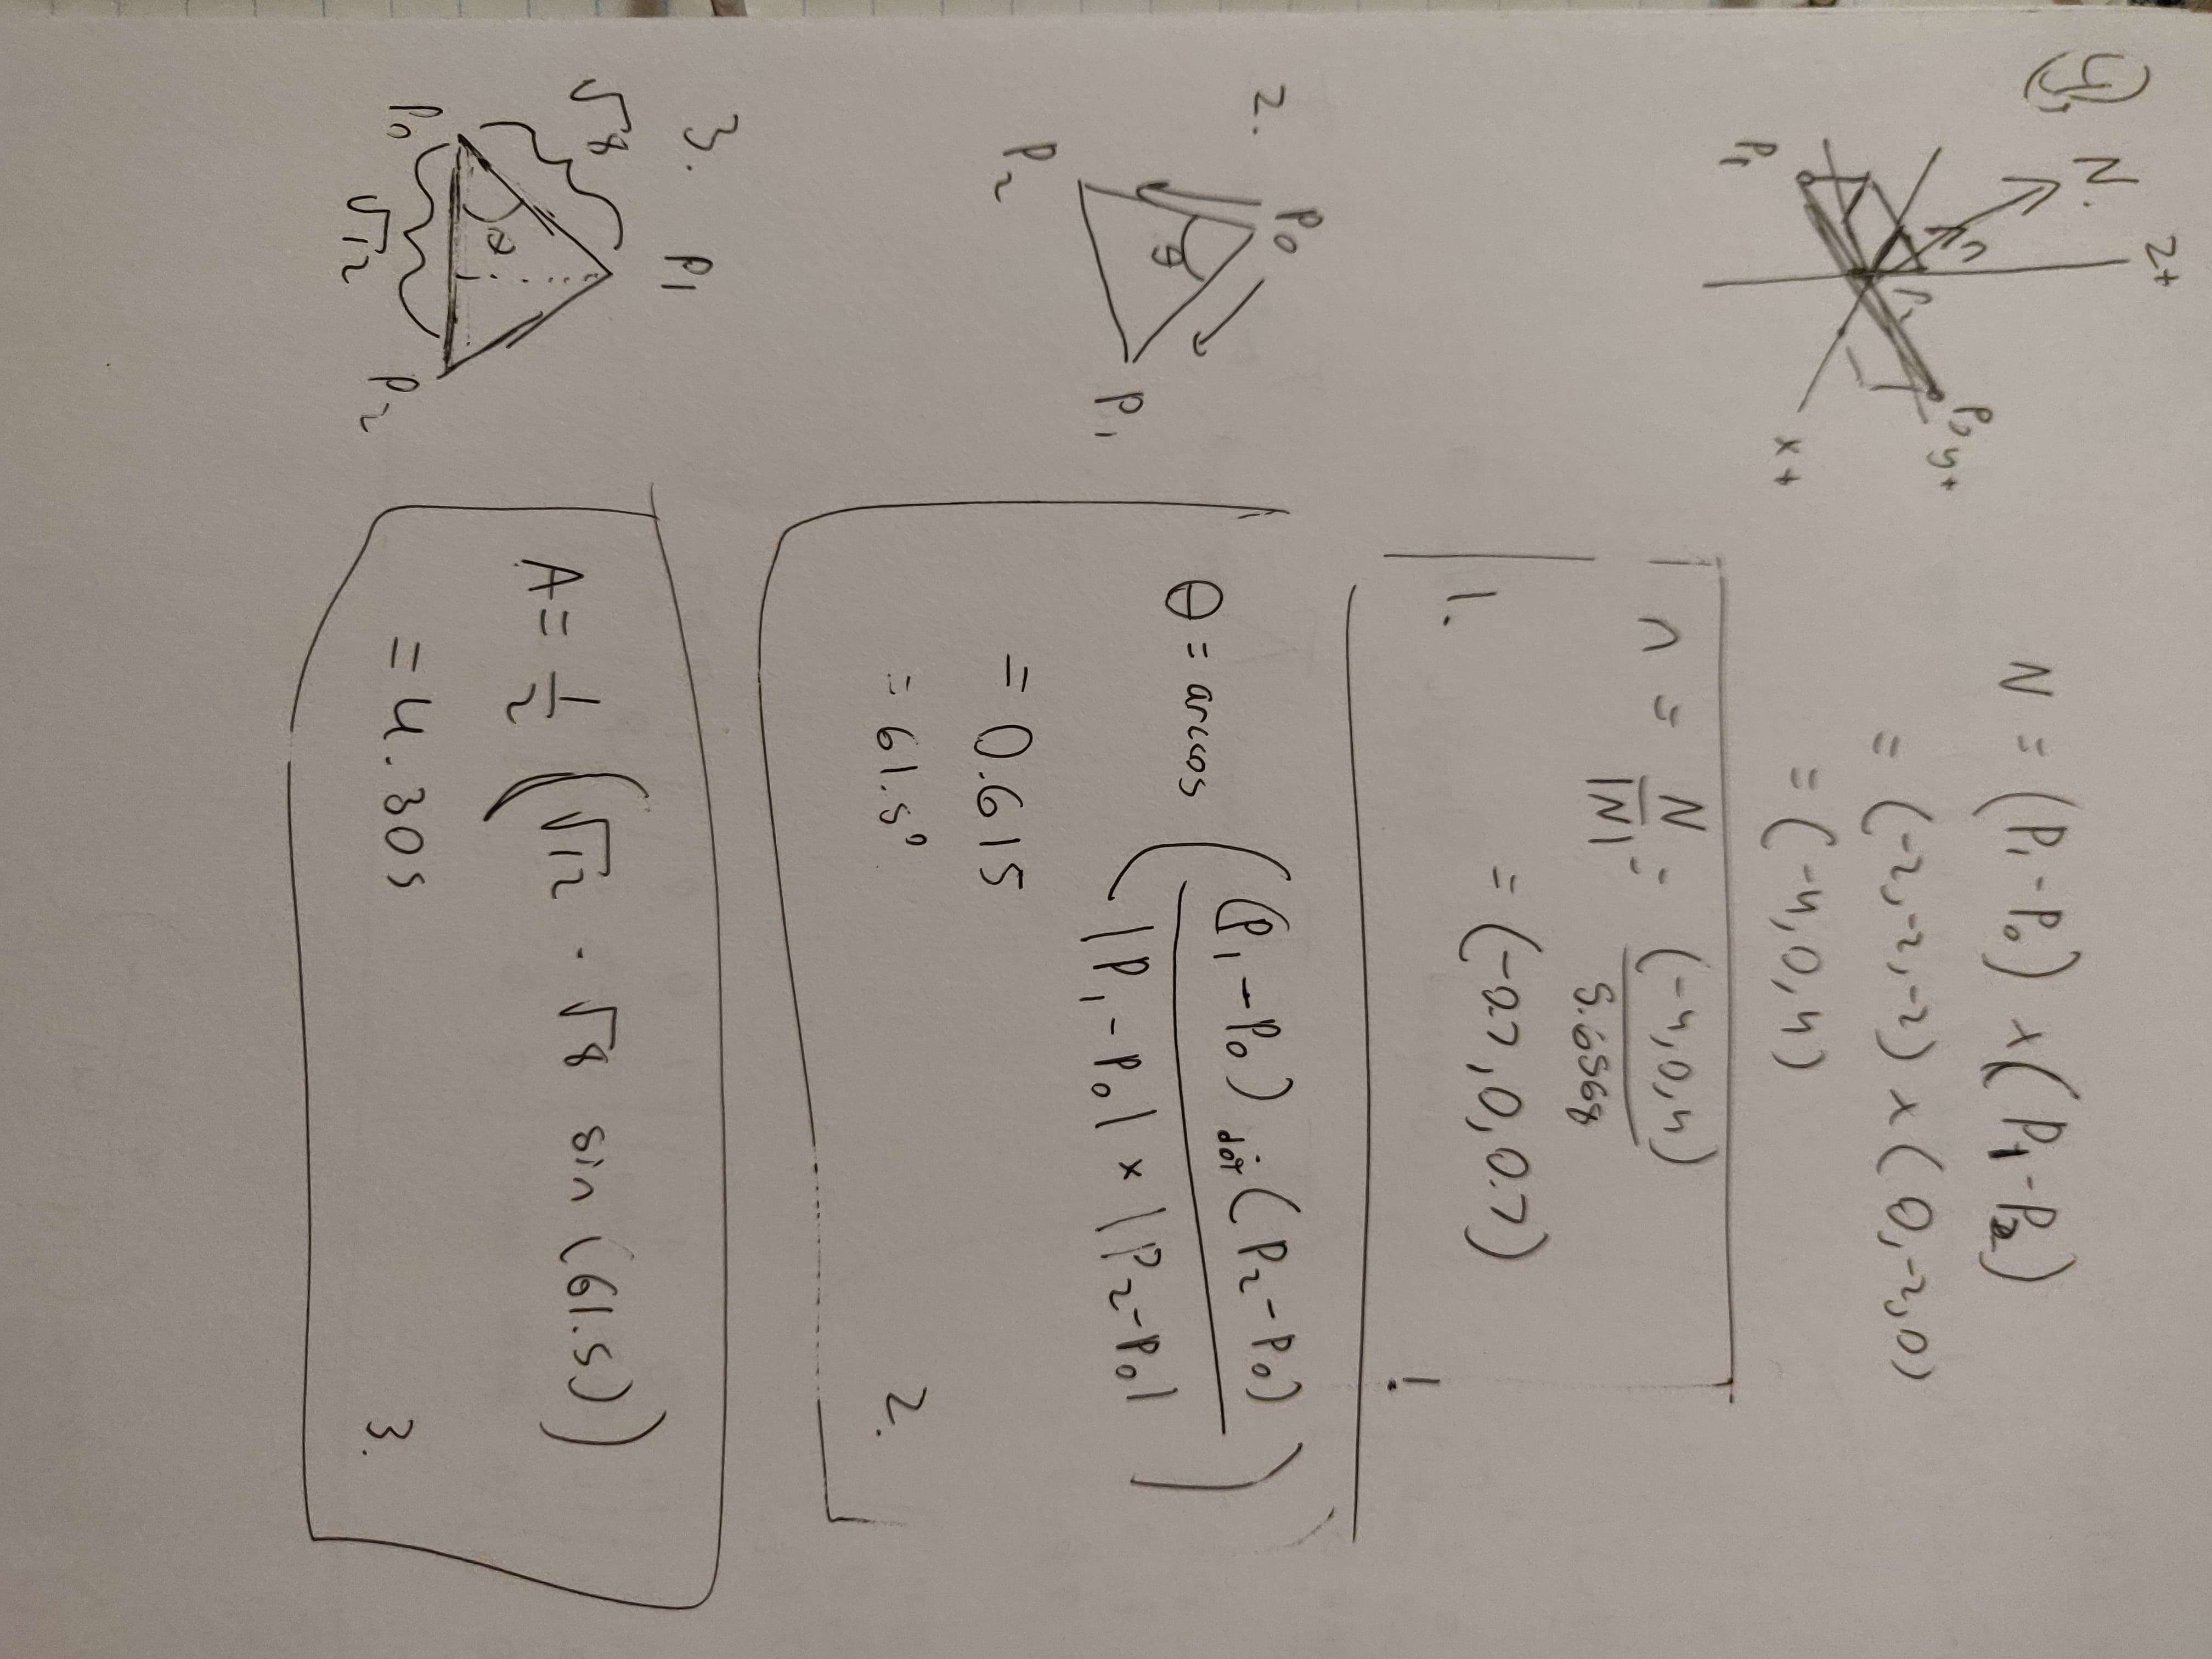 4)
N.
z+
n
P1
P2
P0
y+
x+
N = (P1 - P0) x (P1 - P2)
= (-2,-2,-2) x (0,-2,0)
= (-4,0,4)
n = N/|N| = (-4,0,4)/5.65568
1. = (-0.7,0,0.7)
1
2.
P0
θ
P2
P1
θ = arccos ((P1 - P0) dot (P2 - P0) / |P1 - P0| x |P2 - P0|)
= 0.615
= 61.5°
2.
3.
P1
√8
θ
P0
√12
P2
A = 1/2 (√12 · √8 sin (61.5))
= 4.305
3.